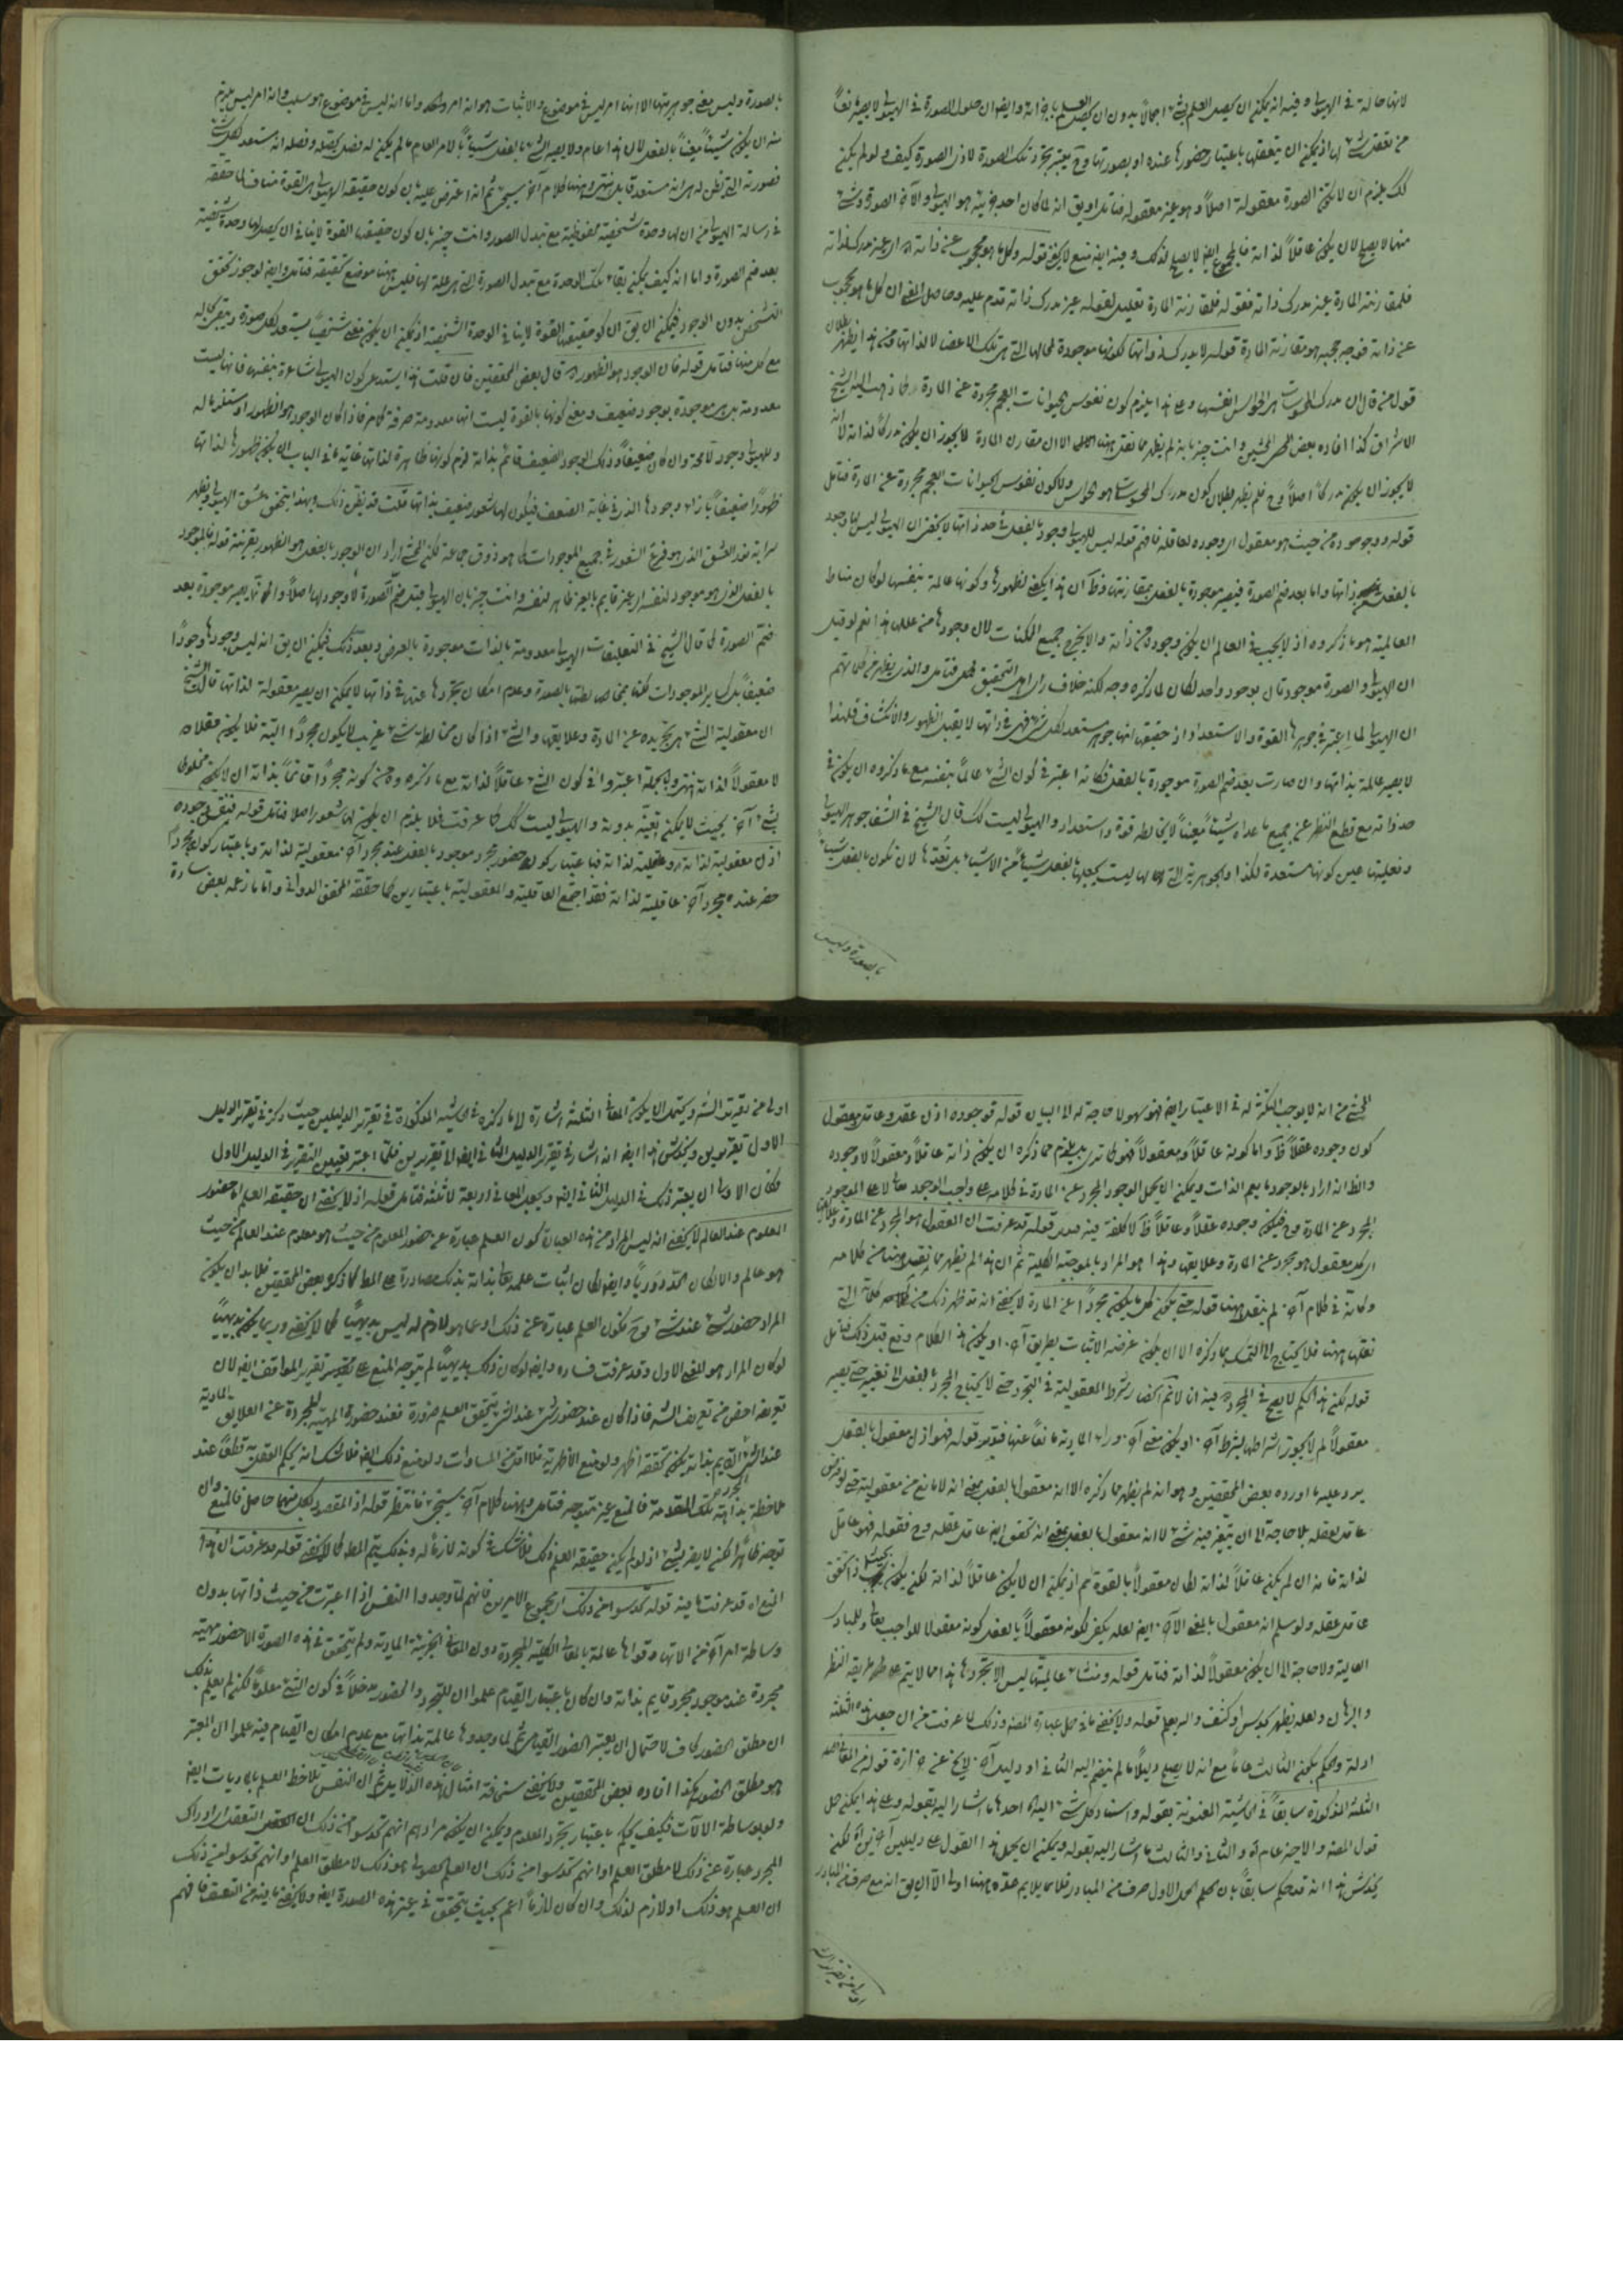 لانها حالة في الهيولى وفيه انه يمكن ان يحصل العلم بشيء اجمالاً بدون ان يحصل العلم وايضا ان حلول الصورة في الهيولى لا يصير مانعاً
من تعقل شيء اذ يمكن ان يتعقلها باعتبار حضورها عنده او بصورتها وح يعتبر تجرد تلك الصورة لا ذي الصورة كيف ولو لم يكن
كك يلزم ان لا يكون الصورة معقولة اصلاً وهو غير معقول فتامل
منها لا يصلح لان يكون عاقلاً لذاته فالمجموع ايضا لا يصلح لذلك وفيه ايضا منع لا يخفى قوله وكل ما هو محجوب عن ذاته اي غير مدرك لذاته
فلمقارنته المادة غير مدرك ذاته فقوله فلمقارنة المادة تعليل لقوله غير مدرك ذاته قدم عليه وحاصل المعنى ان كل ما هو محجوب
عن ذاته فوجه حجبه هو مقارنة المادة قوله لا يدرك ذواتها لكونها موجودة لمحالها التي هي تلك الاعضاء لا لذاتها ومن هذا يظهر بطلان
قول من قال ان مدرك المحسوسات هي الحواس انفسها وعلى هذا يلزم كون نفوس الحيوانات العجم مجردة عن المادة كما ذهب اليه الشيخ
الاشراق كذا افاده بعض المحشين وانت خبير بانه لم يظهر مما نقل ههنا الا ان مقارن المادة لا يجوز ان يكون مدركاً لذاته لا انه
لا يجوز ان يكون مدركاً اصلاً وح فلم يظهر بطلان كون مدرك المحسوسات هو الحواس ولا كون نفوس الحيوانات العجم مجردة عن المادة فتامل
قوله ووجوده من حيث هو معقول اي وجوده لعاقله فافهم قوله ليس للهيولى وجود بالفعل في حد ذاتها لا يخفى ان الهيولى ليس لها وجود
بالفعل بحسب ذاتها واما بعد ضم الصورة فيصير موجودة بالفعل بمقارنتها وظ ان هذا يكفي لظهورها وكونها عالمة بنفسها لو كان مناط
العالمية هو ما ذكروه اذ لا يجب في العالم ان يكون وجوده من ذاته والا يخرج جميع الممكنات لان وجودها من عللها نعم لو قيل
ان الهيولى والصورة موجودتان بوجود واحد لكان لما ذكره وجه لكنه خلاف راي اهل التحقيق فتامل والذي يظهر من كلماتهم
ان الهيولى لما اعتبر في جوهرها القوة والاستعداد اذ حقيقتها انها جوهر مستعد لكل شيء فهي في ذاتها لا يقبل الظهور والانكشاف فلهذا
لا يصير عالمة بذاتها وان صارت بعد ضم الصورة موجودة بالفعل فكانه اعتبر في كون الشيء عالماً بنفسه مع ما ذكروه ان يكون في
حد ذاته مع قطع النظر عن جميع ما عداه شيئاً معيناً لا يخالطه قوة واستعداد والهيولى ليست كك قال الشيخ في الشفا جوهر الهيولى
وفعليتها عين كونها مستعدة لكذا والجوهرية التي لها ليست يجعلها بالفعل شيئاً من الاشياء بل تعدها لان تكون بالفعل شيئاً
بالصورة وليس
بالصورة وليس معنى جوهريتها الا انها امر ليس في موضوع والاثبات هو انه امر واما انه ليس في موضوع هو سلب وانه امر ليس يلزم
منه ان يكون شيئاً معيناً بالفعل لان هذا عام ولا يصير الشيء بالفعل شيئاً بالامر العام ما لم يكن له فصل يخصه وفصله انه مستعد لكل شيء
فصورته التي تظن له هي انه مستعد قابل انتهى وههنا كلام آخر سيجيء ثم انه اعترض عليه بان كون حقيقة الهيولى هي القوة مناف لما حققه
في رسالة الهيولى من ان لها وحدة شخصية محفوظة مع تبدل الصور وانت خبير بان كون حقيقتها القوة لا ينافي ان يحصل لها وحدة شخصية
بعد ضم الصورة واما انه كيف يمكن بقاء تلك الوحدة مع تبدل الصورة التي هي علة لها فليس ههنا موضع تحقيقه فتامل وايضا لو جوز تحقق
التشخص بدون الوجود فيمكن ان يق ان كون حقيقتها القوة لا ينافي الوحدة الشخصية اذ يمكن ان يكون معنى شخصياً يستعد لكل صورة ويبقى بحاله
مع كل منها فتامل قوله فان الوجود هو الظهور اه قال بعض المحققين فان قلت هذا يستدعي كون الهيولى شاعرة بنفسها فانها ليست
معدومة بل هي موجودة بوجود ضعيف ومعنى كونها بالقوة ليست انها معدومة صرفة كما مر فاذا كان الوجود هو الظهور او مستلزماً له
وللهيولى وجود لا محة وان كان ضعيفاً وذلك الوجود الضعيف قائم بذاته لزم كونها ظاهرة لذاتها غاية ما في الباب ان يكون ظهورها لذاتها
ظهوراً ضعيفاً بازاء وجودها الذي في غاية الضعف فيكون لها شعور ضعيف بذاتها قلت قد يظن ذلك وبهذا يتحقق عشق الهيولى ويظهر
سراية نور العشق الذي هو فرع الشعور في جميع الموجودات كما هو ذوق جماعة لكن المحشي اراد ان الوجود بالفعل هو الظهور بقرينة قوله فالموجود
بالفعل الذي هو موجود لنفسه اي غير قايم بالغير ظاهر لنفسه وانت خبير بان الهيولى قبل ضم الصورة لا وجود لها اصلاً يصير موجودة بعد
ضم الصورة كما قال الشيخ في التعليقات الهيولى معدومة بالذات موجودة بالعرض وبعد ذلك فيمكن ان يق انه ليس وجودها وجوداً
ضعيفاً بل كساير الموجودات لكنها مخالطتها بالصورة وعدم امكان تجردها عنها في ذاتها لا يمكن ان يصير معقولة لذاتها قال الشيخ
ان معقولية الشيء هي تجريده عن المادة وعلايقها والشيء اذا كان مخالطة شيء غريب لا يكون مجرداً البتة فلا يكون عقلاً
لا معقولاً لذاته انتهى وبالجملة اعتبروا في كون الشيء عاقلاً لذاته مع ما ذكره من كونه مجرداً قائماً بذاته ان لا يكون مخلوطاً
بشيء آخر بحيث لا يمكن تعينه بدونه والهيولى ليست كك كما عرفت فلا يلزم ان يكون لها شعور اصلا فتامل قوله فنفس وجوده
اذن معقوليته لذاته وعقليته لذاته فباعتبار كونه حضور مجرد موجود بالفعل عند مجرد آخر معقولية لذاته وباعتبار كونه مجرداً
حضر عنده مجرد آخر عاقلية لذاته فقد اجتمع العاقلية والمعقولية باعتبارين كما حققه المحقق الدواني واما ما زعمه بعض سادة
المحشين من انه لا يوجب التكثر له في الاعتبار ايضا فهو سهو لا حاجة له الى البيان قوله فوجوده اذن عقل وعاقل ومعقول
كون وجوده عقلاً ظ واما كونه عاقلاً ومعقولاً فهو كما ترى بل يلزم مما ذكره ان يكون ذاته عاقلاً ومعقولاً لا وجوده
والظ انه اراد بالوجود ما يعم الذات ويمكن ان يحمل الوجود المجرد عن المادة في كلامه على واجب الوجود تعالى لا على الموجود
المجرد عن المادة وح فيكون وجوده عقلاً وعاقلاً ظ لا كلفة فيه قوله قد عرفت ان المعقول هو المجرد عن المادة وعلايقها
اي كل معقول هو مجرد عن المادة وعلايقها وهذا هو المراد بالموجبة الكلية ثم ان هذا لم يظهر مما نقل ههنا من كلامه
وكانه في كلام آخر لم ينقل ههنا قوله حتى يكون كل ما يكون مجرداً عن المادة لا يخفى انه قد ظهر ذلك من كلماته التي
نقلها ههنا فلا يحتاج الى التمسك بما ذكره الا ان يكون غرضه الاثبات بطريق آخر او يكون هذا الكلام وقع قبل ذلك فتامل
قوله لكن هذا الحكم لا يصح في المجرد فيه انا لا نم انحصار شرط المعقولية في التجرد حتى لا يحتاج المجرد بالفعل الى تغييره حتى يصير
معقولاً لم لا يجوز اشتراطها بشرط آخر او يكون معنى آخر وراء المادية مانعاً عنها فتدبر قوله فهو اذن معقول بالفعل
يرد عليه ما اورده بعض المحققين وهو انه لم يظهر مما ذكره الا انه معقول بالفعل بمعنى انه لا مانع من معقوليته حتى لو فرض
عاقل لعقله بلا حاجة الى ان يتغير فيه شيء لا انه معقول بالفعل بمعنى انه تحقق ايضا عاقل عقله وح فقوله فهو عاقل
لذاته فانه ان لم يكن عاقلاً لذاته لكان معقولاً بالقوة ثم اذ يمكن ان لا يكون عاقلاً لذاته لكن يكون بحيث اذا تحقق
عاقل عقله ولو سلم انه معقول بالمعنى الآخر ايضا لعله يكفي لكونه معقولاً بالفعل كونه معقولا للواجب تعالى وللمبادي
العالية ولا حاجة الى ان يكون معقولاً لذاته فتامل قوله ومنشاء عالميتها ليس الا تجردها هذا مما لا يتم على طريقة النظر
والبرهان ولعله يظهر بحدس او كشف والله يعلم قوله ولا يخفى ما في حمل عبارة المصنف وذلك لما عرفت من ان جعل هذه الثلثة
ادلة والحكم بكون الثالث عاماً مع انه لا يصلح دليلاً ما لم ينضم اليه الثاني او دليل آخر لا يخلو عن حزازة قوله من المعاني
الثلثة المذكورة سابقاً في الحاشية المعنونة بقوله واستناد كل شيء اليه احدها ما اشار اليه بقوله وعلى هذا يمكن حمل
قول المصنف والاخير عام اه والثاني والثالث ما اشار اليه بقوله ويمكن ان يحمل هذا القول على دليلين آخرين اه لكن
يخدش هذا انه قد حكم سابقاً بان حكم الحمل الاول صرف عن المتبادر فلا يلايم عده ههنا اولى الا ان يق انه مع صرفه عن المتبادر
اولى من تقرير الشه
اولى من تقرير الشه ويحتمل ان يكون المعاني الثلثة اشارة الى ما ذكره في الحاشية المذكورة في تقرير الدليلين حيث ذكر في تقرير الدليل
الاول تقريرين ويخدش هذا ايضا انه اشار في تقرير الدليل الثاني ايضا الى تقريرين فلما اعتبر تعيين التقرير في الدليل الاول
فكان الاولى ان يعتبر ذلك في الدليل الثاني ايضا ويجعل المعاني اربعة لا ثلثة فتامل قوله اذ لا يخفى ان حقيقة العلم اه حضور
المعلوم عند العالم لا يخفى انه ليس المراد من هذه العبارة كون العلم عبارة عن حضور المعلوم من حيث هو معلوم عند العالم من حيث
هو عالم والا لكان الحد دورياً وايضا لكان اثبات علمه تعالى بذاته بذلك مصادرة على المط كما ذكره بعض المحققين فلا بد ان يكون
المراد حضور شيء عند شيء وح يكون العلم عبارة عن ذلك او عما هو لازم له ليس بديهياً كما لا يخفى وربما يكون بديهياً
لو كان المراد هو المعنى الاول وقد عرفت فساده وايضا لو كان ذلك بديهياً لم يتوجه المنع على تقرير المواقف ايضا لان
تعريفه اخص من تعريف الشه فاذا كان عند حضور شيء عند شيء يتحقق العلم ضرورة فعند حضور الماهية المجردة عن العلايق المادية
عند الشيء القائم بذاته يكون تحققه اظهر ولو منع الاظهرية فلا اقل من المساوات ولو منع ذلك ايضا فلا شك انه يحكم العقل به قطعاً عند
ملاحظة بداهة تلك المقدمة فالمنع غير متوجه فتامل وههنا كلام آخر سيجيء فانتظر قوله اذ المقصود لكل منهما حاصل فالمنع وان
توجه ظاهراً لكن لا يضر بشيء اذ لو لم يكن حقيقة العلم ذلك فلا شك في كونه لازماً له وبذلك يتم المط كما لا يخفى قوله قد عرفت ان هذا
المنع اه قد عرفت ما فيه قوله تحدسوا من ذلك اي مجموع الامرين فانهم لما وجدوا النفس اذا اعتبرت من حيث ذاتها بدون
وساطة امر آخر من الاتها وقواها عالمة بالمعاني الكلية المجردة دون المعاني الجزئية المادية ولم يتحقق في هذه الصورة الا حضور ماهية
مجردة عند موجود مجرد قايم بذاته وان كان باعتبار القيام علموا ان للتجرد والحضور مدخلاً في كون الشيء معلوماً لكن لم يعلم بذلك
ان مطلق الحضور كاف لاحتمال ان يعتبر الحضور القيامي ثم لما وجدوها عالمة بذاتها مع عدم امكان القيام فيه علموا ان المعتبر
هو مطلق الحضور هكذا افاده بعض المحققين ولا يخفى سخافة امثال هذه الدلايل ثم ان النفس تلاحظ العلم بالماديات ايضا
ولو بوساطة الآلات فكيف يحكم باعتبار تجرد المعلوم ويمكن ان يكون مرادهم انهم تحدسوا من ذلك ان التعقل اي ادراك
المجرد عبارة عن ذلك لا مطلق العلم او انهم تحدسوا من ذلك ان العلم الحصولي هو ذلك لا مطلق العلم او انهم تحدسوا من ذلك
ان العلم هو ذلك او لازم لذلك وان كان لازماً اعم بحيث يتحقق في غير هذه الصورة ايضا ولا يخفى ما فيه من التعسف فافهم